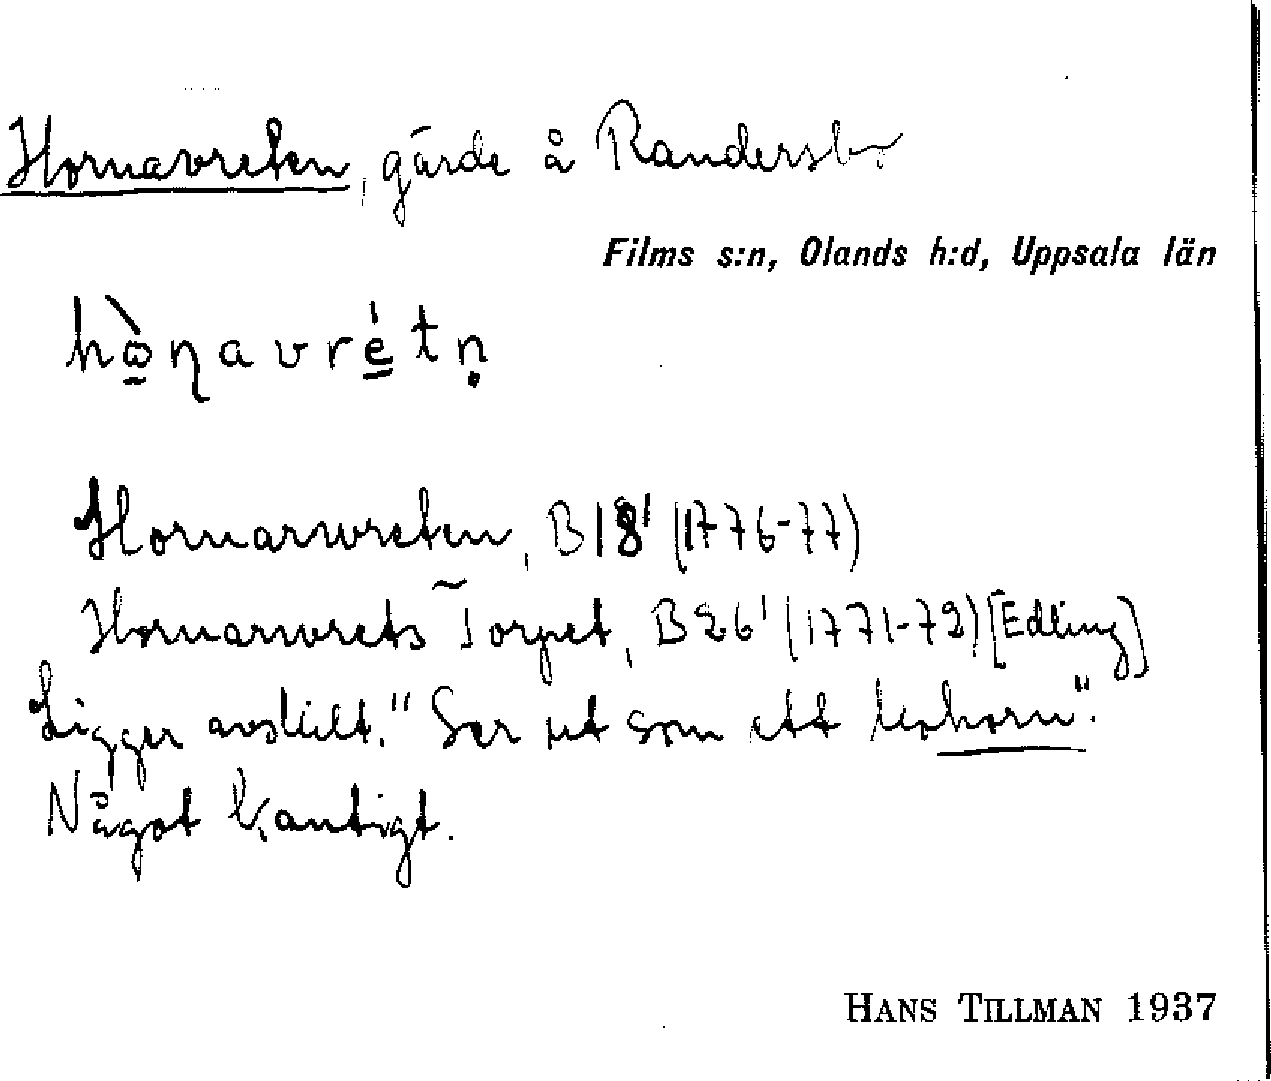 Hornavreten, gärde å Randersbo.
Films s:n, Olands h:d, Uppsala län
hὼ̱ɳavré̱tṇ
Hornarwreten, B18¹ (1776-77)
Hornarwrets Torpet, B26¹ (1771-72) [Edling]
Ligger avskilt. "Ser ut som ett kohorn".
Något kantigt.
HANS TILLMAN 1937